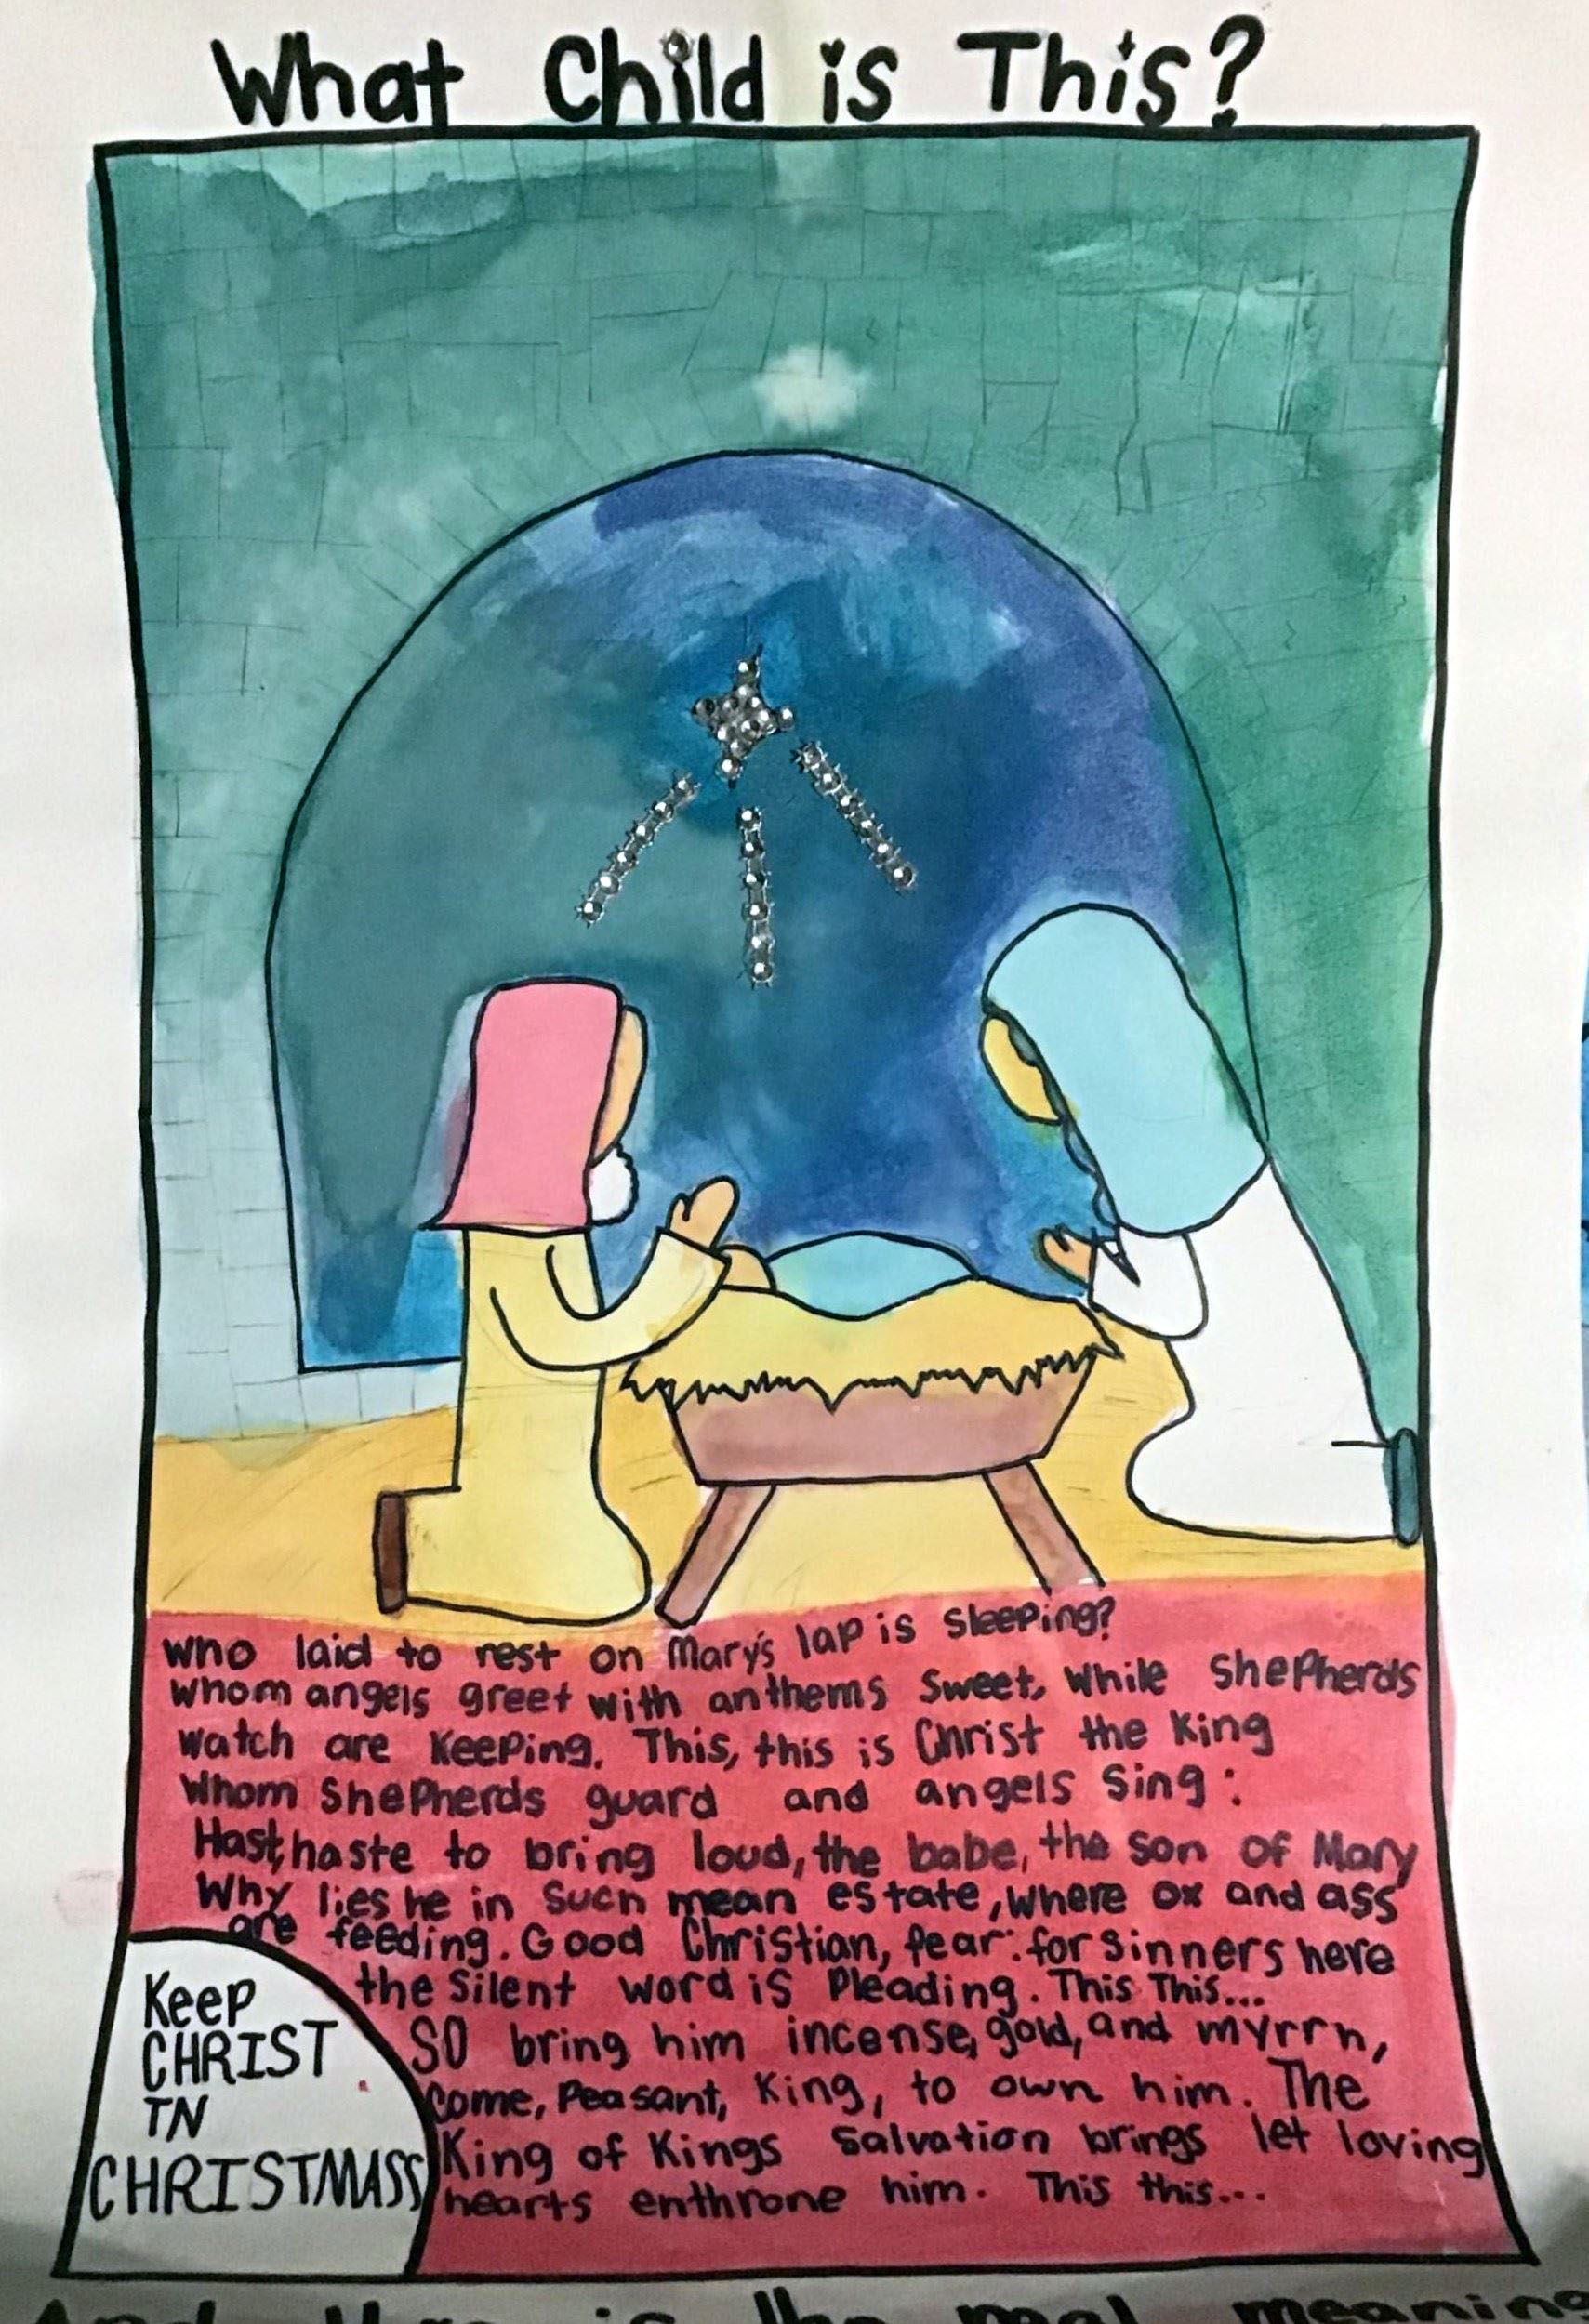 What Child is This?
Who laid to rest on Mary's lap is sleeping?
whom angels greet with anthems sweet, while shepherds
watch are keeping. This, this is Christ the King
Whom shepherds guard and angels sing:
Hast, haste to bring loud, the babe, the son of Mary
Why lies he in such mean estate, where ox and ass
are feeding. Good Christian, fear: for sinners here
the silent word is pleading. This This...
SO bring him incense, gold, and myrrh,
come, Peasant, King, to own him. The
King of Kings salvation brings let loving
hearts enthrone him. This this...
Keep
CHRIST
IN
CHRISTMASS
is the real meaning